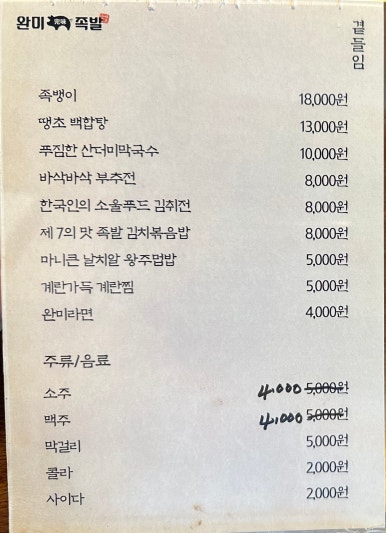 완미 족발
곁들임
족뱅이 18,000원
땡초 백합탕 13,000원
푸짐한 산더미막국수 10,000원
바삭바삭 부추전 8,000원
한국인의 소울푸드 김취전 8,000원
제 7의 맛 족발 김치볶음밥 8,000원
마니큰 날치알 왕주멉밥 5,000원
계란가득 계란찜 5,000원
완미라면 4,000원
주류/음료
소주 4,000 5,000원
맥주 4,000 5,000원
막걸리 5,000원
콜라 2,000원
사이다 2,000원